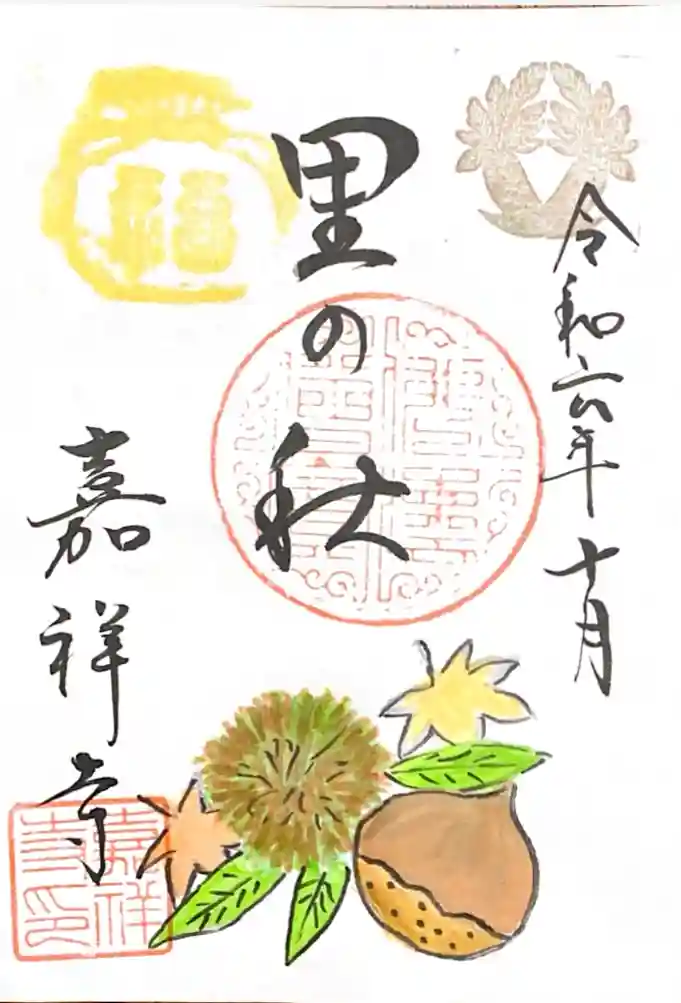 令和六年十月
里の秋
福
嘉祥寺
嘉祥寺印